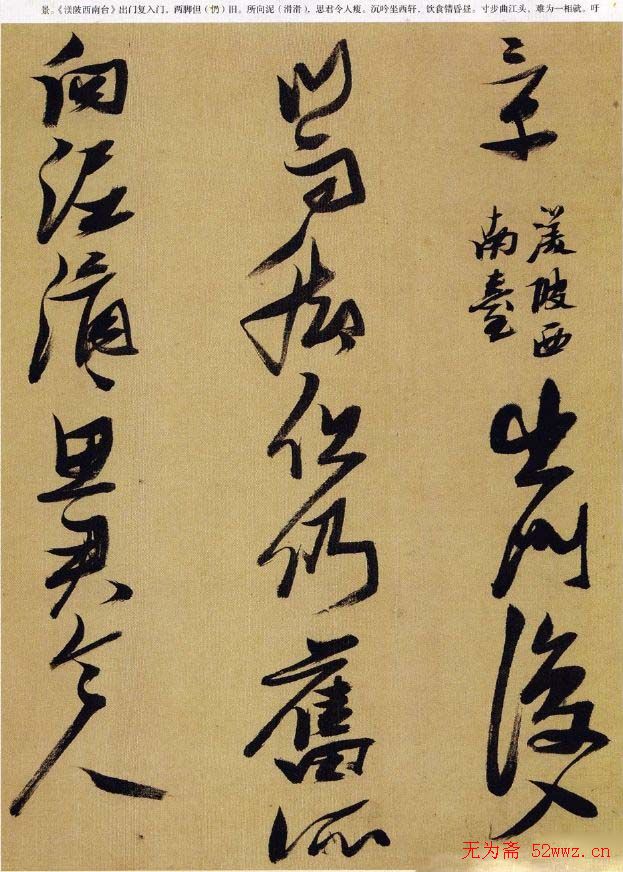 景。《渼陂西南台》出门复入门，两脚但（仍）旧。所向泥（滑滑），思君令人瘦。沉吟坐西轩，饮食错昏昼。寸步曲江头，难为一相就。吁
景
渼陂西
南臺
出門復入
門雨脚但仍舊所
向泥滑〻思君令人
无为斋 52wwz.cn